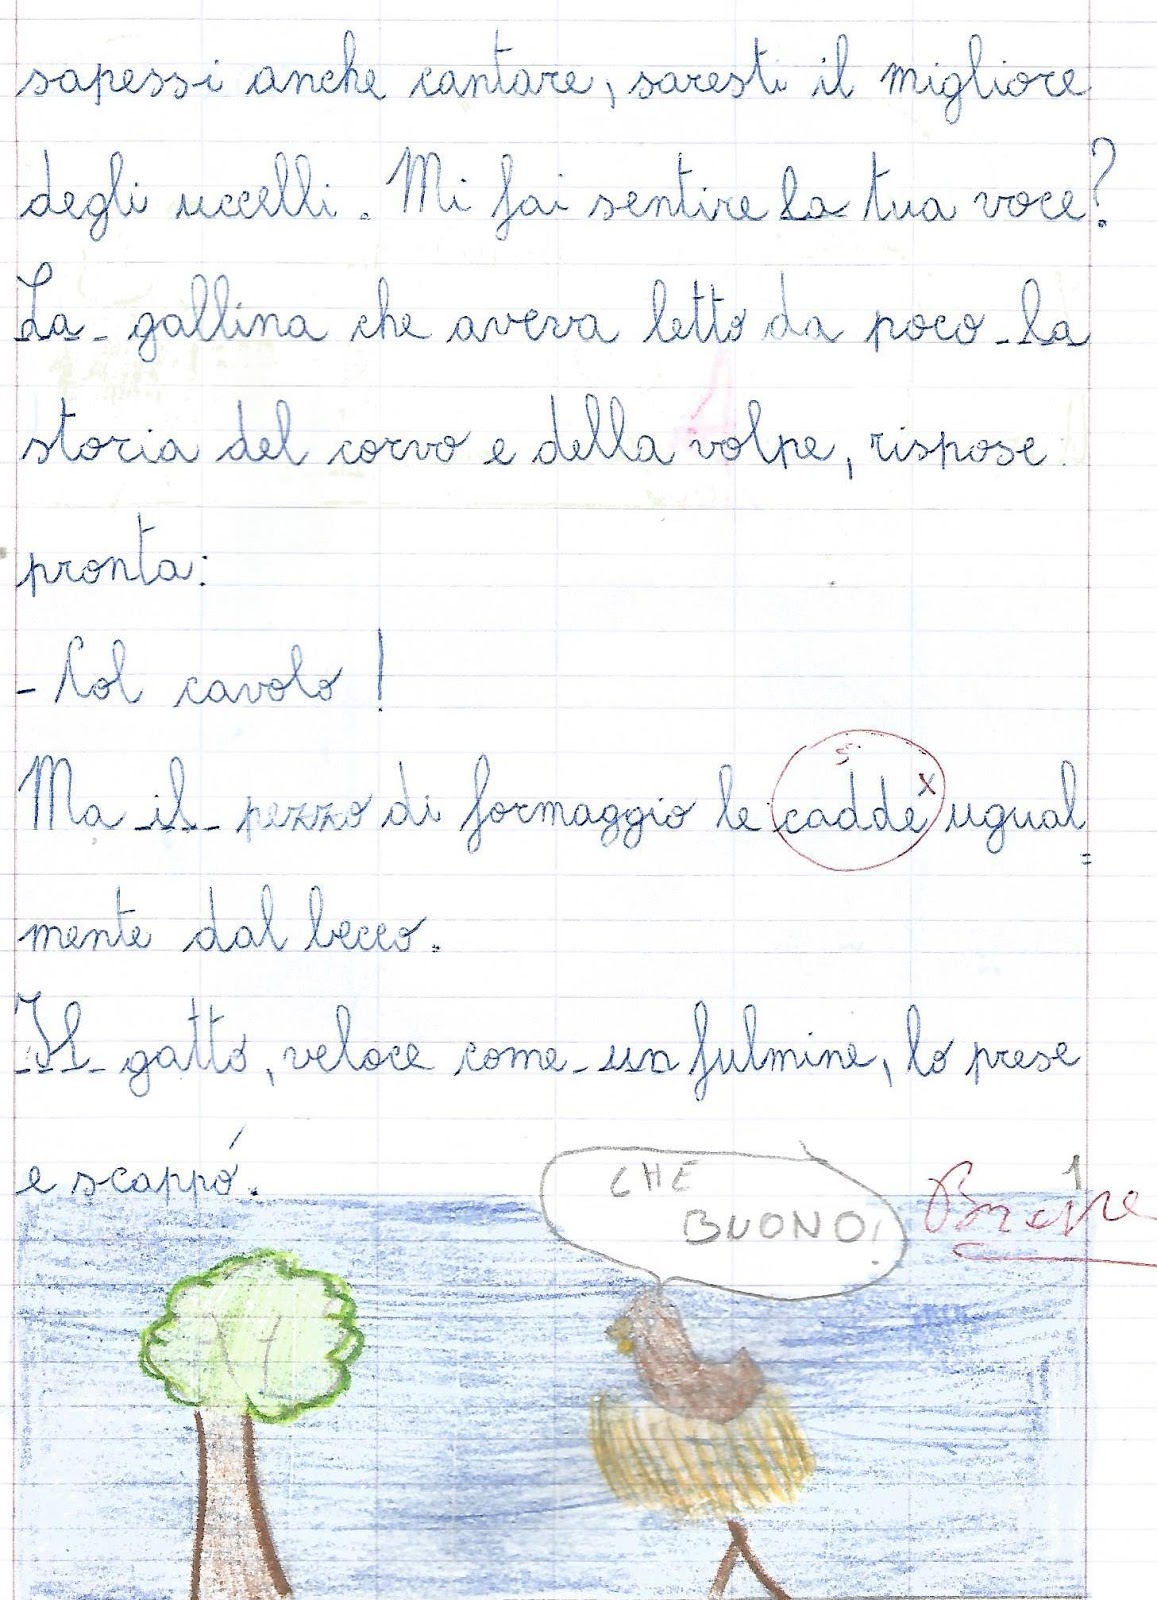 sapessi anche cantare, saresti il migliore
degli uccelli. Mi fai sentire la tua voce?
La gallina che aveva letto da poco la
storia del corvo e della volpe, rispose
pronta:
- Col cavolo!
Ma il pezzo di formaggio le cadde ugual=
mente dal becco.
Il gatto, veloce come un fulmine, lo prese
e scappó.
CHE
BUONO!